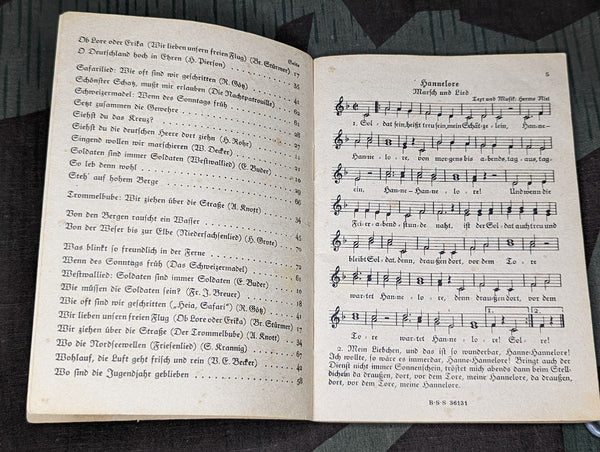 Seite
Ob Lore oder Erika (Wir lieben unsern freien Flug) (Br. Stürmer) 17
O Deutschland hoch in Ehren (H. Pierson)
Safarilied: Wie oft sind wir geschritten (R. Götz)
Schönster Schatz, mußt mir erlauben (Die Nachtpatrouille)
Schweizermadel: Wenn des Sonntags früh
Setzt zusammen die Gewehre
Siehst du das Kreuz?
Siehst du die deutschen Heere dort ziehn (H. Rohr)
Singend wollen wir marschieren (W. Decker)
Soldaten sind immer Soldaten (Westwallied) (E. Buder)
So leb denn wohl
Steh' auf hohem Berge
Trommelbube: Wir ziehen über die Straße (A. Knott)
Von den Bergen rauscht ein Wasser
Von der Weser bis zur Elbe (Niedersachsenlied) (H. Grote)
Was blinkt so freundlich in der Ferne
Wenn des Sonntags früh (Das Schweizermadel)
Westwallied: Soldaten sind immer Soldaten (E. Buder)
Wie müssen die Soldaten sein? (Fr. J. Breuer)
Wie oft sind wir geschritten („Heia, Safari“) (R. Götz)
Wir lieben unsern freien Flug (Ob Lore oder Erika) (Br. Stürmer)
Wir ziehen über die Straße (Der Trommelbube) (A. Knott)
Wo die Nordseewellen (Friesenlied) (S. Krannig)
Wohlauf, die Luft geht frisch und rein (V. E. Becker)
Wo sind die Jugendjahr geblieben 58
5
Hannelore
Marsch und Lied
Text und Musik: Herms Niel
1. Soldat sein, heißt treu sein, mein Schätzelein, Hanne-
Hannelore, von morgens bis abends, tagaus, tag-
ein, Hanne-Hannelore! Und wenn die
Feierabendstunde naht, ist der Soldat auch treu und
bleibt Soldat, denn, draußen dort, vor dem Tore
wartet Hannelore, denn draußen dort vor dem
Tore wartet Hannelore! Lore!
2. Mein Liebchen, und das ist so wunderbar, Hanne-Hannelore!
Ich wollte, so wäre es immerdar, Hanne-Hannelore! Bringt auch der
Dienst nicht immer Sonnenschein, tröstet mich abends dann beim Stell-
dichein da draußen, dort, vor dem Tore, meine Hannelore, da draußen,
dort, vor dem Tore, meine Hannelore.
B·S·S 36131